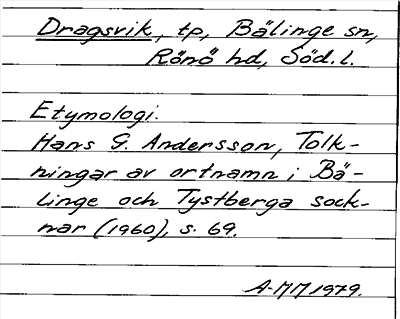 Dragsvik, tp, Bälinge sn,
Rönö hd, Söd. l.
Etymologi.
Hans G. Andersson, Tolk-
ningar av ortnamn i Bä-
linge och Tystberga sock-
nar (1960), s. 69.
A-MM 1979.